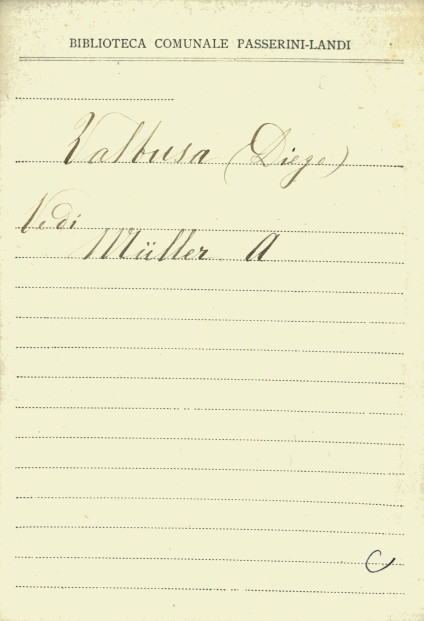 BIBLIOTECA COMUNALE PASSERINI-LANDI
Valbusa (Diego)
Vedi
Müller A
C